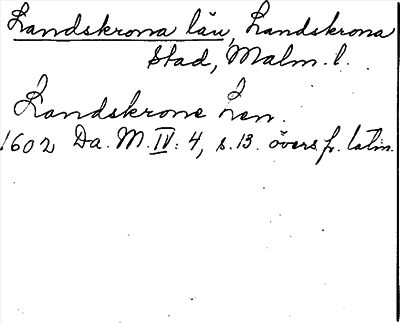 Landskrona län, Landskrona
Stad, Malm. l.
Landskrone Len.
1602 Da. M. IV: 4, s. 13. övers. fr. latin.